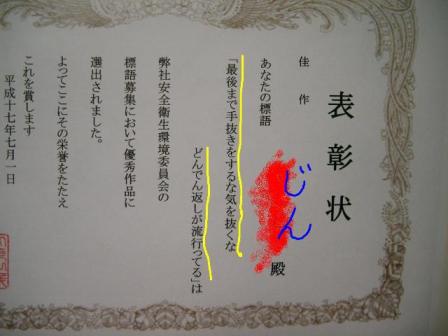 表彰状
佳作
じん 殿
あなたの標語
『最後まで手抜きをするな気を抜くな
どんでん返しが流行ってる』は
弊社安全衛生環境委員会の
標語募集において優秀作品に
選出されました。
よってここにその栄誉をたたえ
これを賞します
平成十七年七月一日